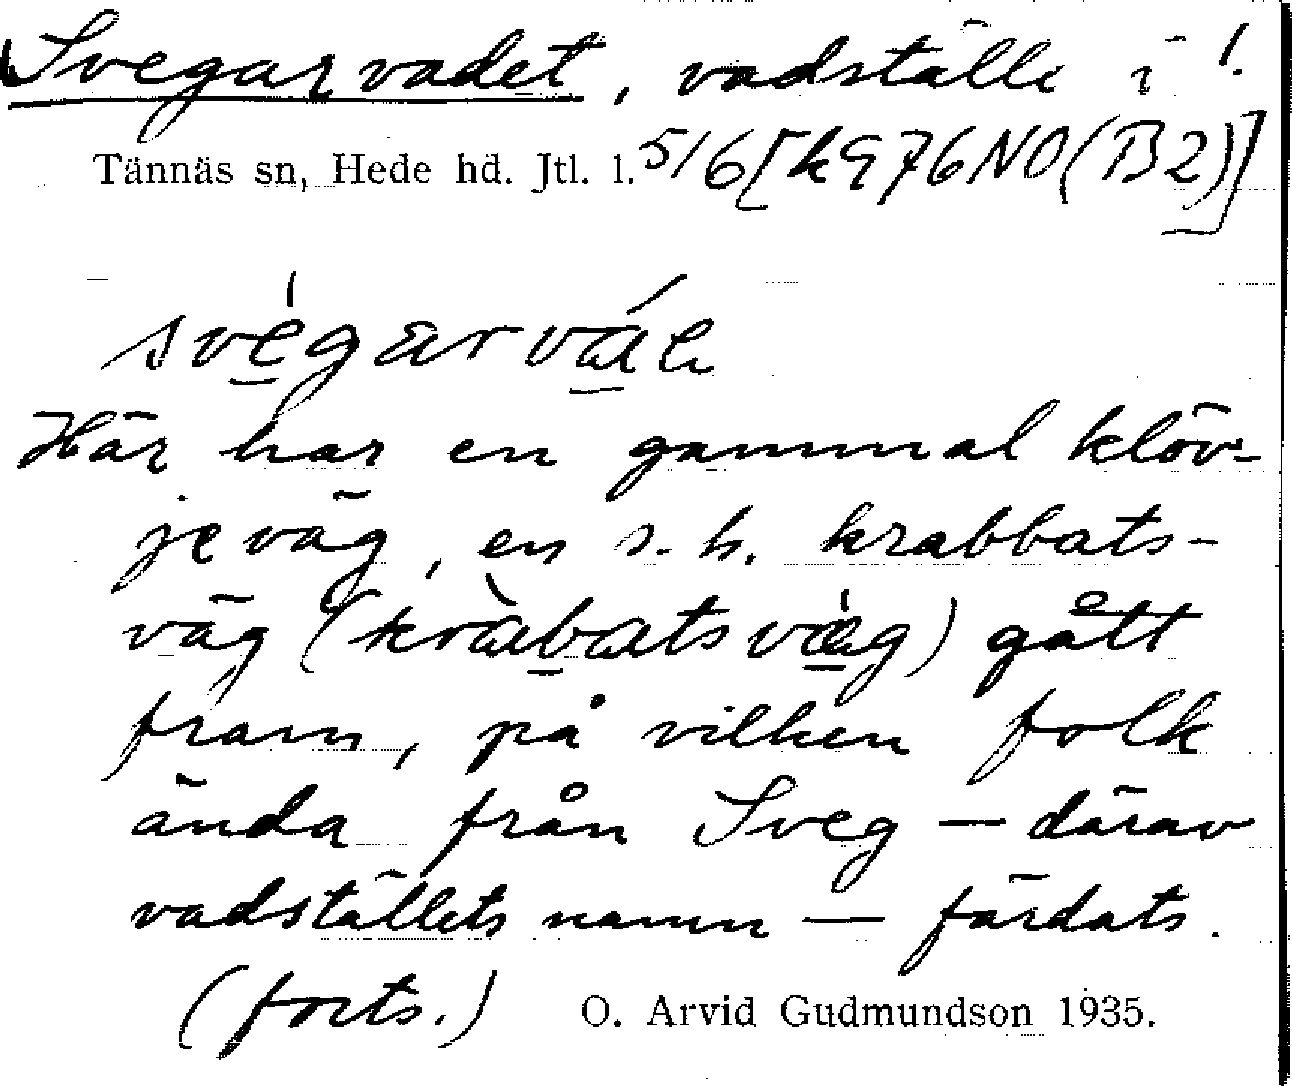 Svegarvadet, vadställe i 1.
Tännäs sn, Hede hd. Jtl. l. 516 [k 976 NO (B2)]
svégarváe
Här har en gammal klöv-
jeväg, en s.k. krabbats-
väg (kràbatsvæg) gått
fram, på vilken folk
ända från Sveg — därav
vadställets namn — färdats.
(forts.) O. Arvid Gudmundson 1935.